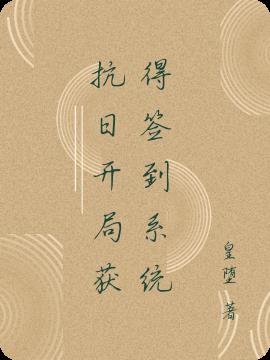 抗日开局获
得签到系统
皇堕 著